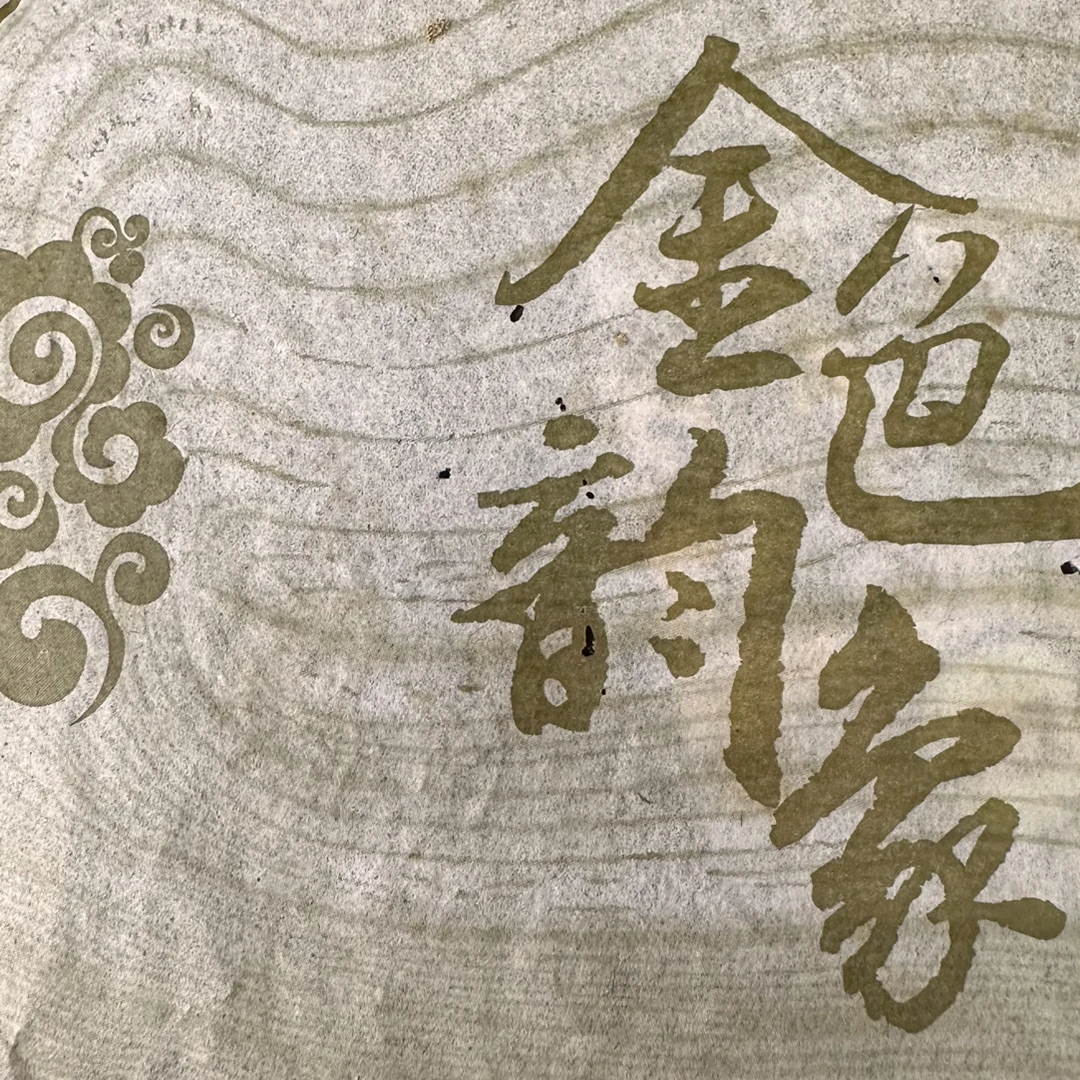 金色
韵象